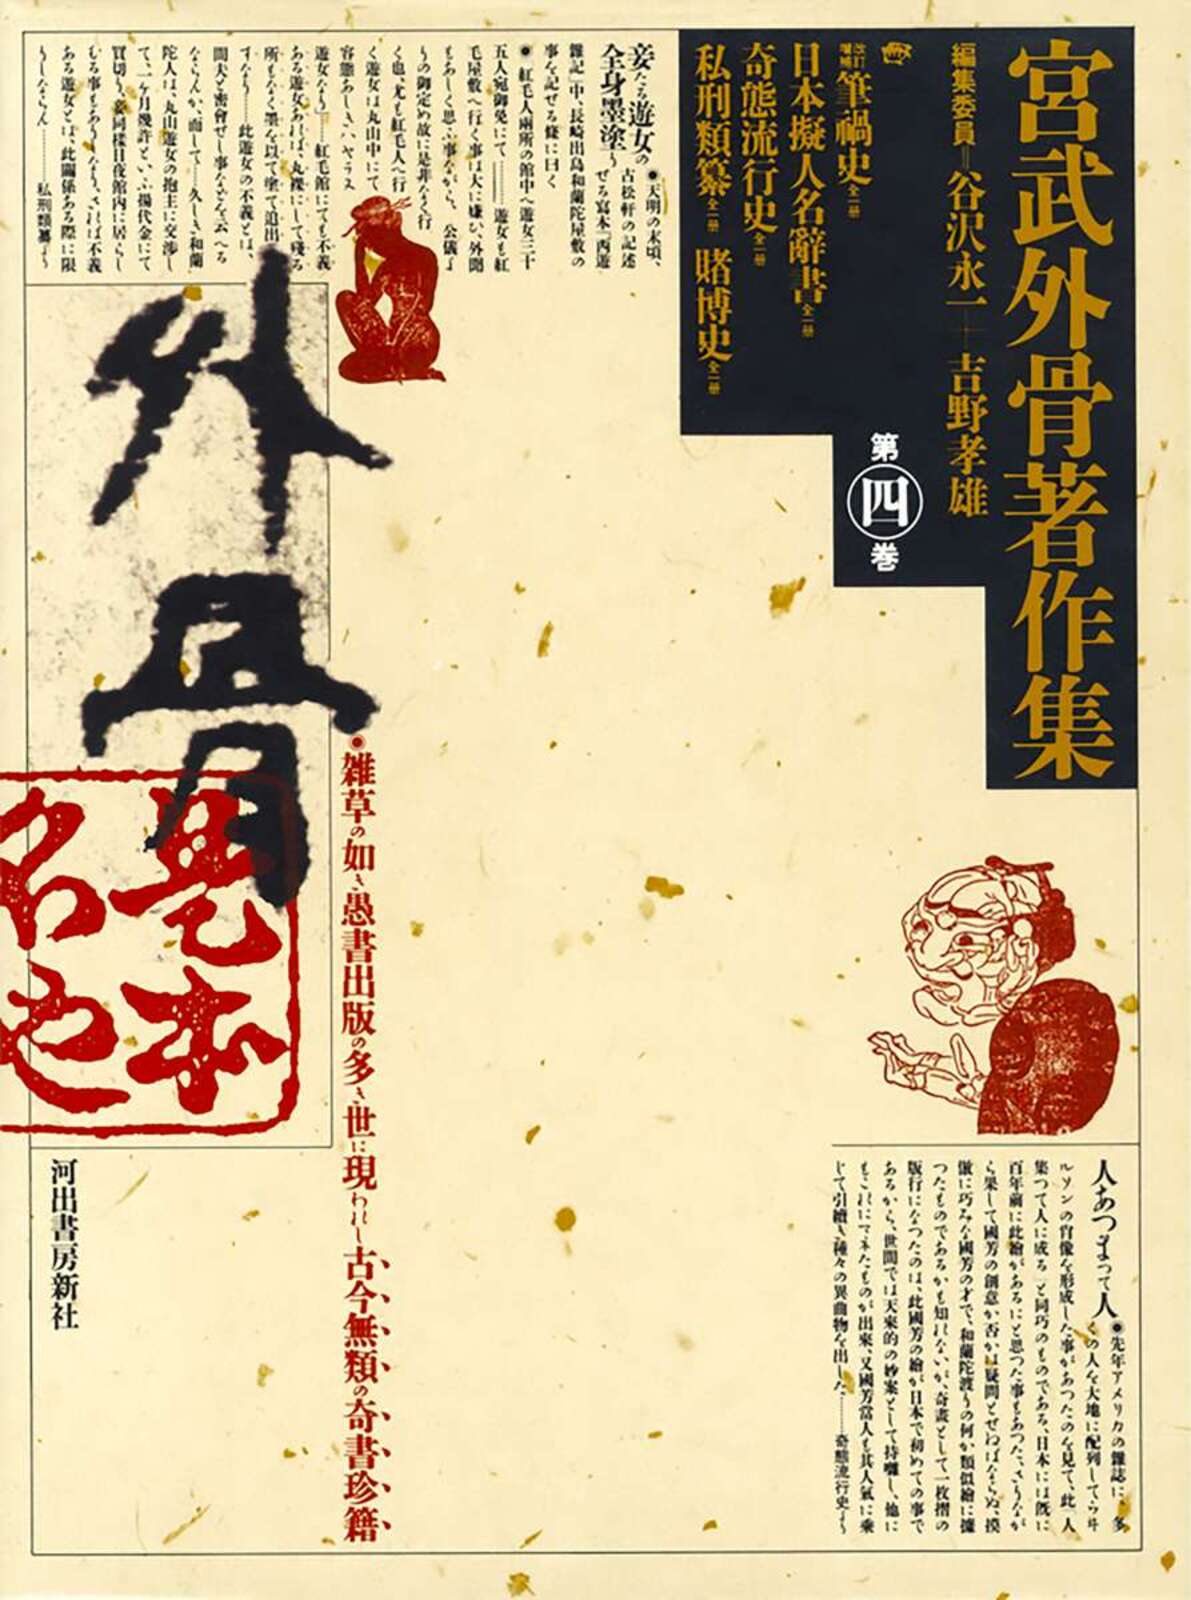 宮武外骨著作集
編集委員=谷沢永一+吉野孝雄
改訂増補筆禍史全一册
日本擬人名辭書全一册
奇態流行史全一册
私刑類纂全一册
賭博史全一册
第四巻
妾たる遊女の
全身墨塗り
●天明の末頃、
古松軒の記述
せる寫本『西遊
雜記』中、長崎出島和蘭陀屋敷の
事を記せる條に曰く
●紅毛人兩所の館中へ遊女三十
五人宛御免にて――遊女も紅
毛屋敷へ行く事は大に嫌ひ、外聞
もあしく思ふ事ながら、公儀よ
りの御定め故に是非なく行
く也、尤も紅毛人へ行
く遊女は丸山中にて
遊女なり……紅毛館にても不義
ある遊女あれば、丸裸にして殘る
所もなく墨を以て塗て追出
すなり……此遊女の不義とは、
間夫と密會せし事などを云へる
ならんか、而して――久しき和蘭
陀人は、丸山遊女の抱主に交渉し
て、一ヶ月幾許といふ揚代金にて
買切り、妾同樣日夜館内に居らし
むる事もありしなり、されば不義
ある遊女とは、此關係ある際に限
りしならん……私刑類纂より
外骨
●雑草の如き愚書出版の多き世に現われし古今無類の奇書珍籍
河出書房新社
人あつまつて人
●先年アメリカの雜誌に、多
くの人を大地に配列してウヰ
ルソンの肖像を形成した事があつたのを見て、此「人
集つて人に成る」と同巧のものである、日本には既に
百年前に此繪があるにと思つた事もあつた、さりなが
ら果して國芳の創意か否かは疑問とせねばならぬ、摸
倣に巧みな國芳の才で、和蘭陀渡りの何か類似繪に據
つたものであるかも知れないが、奇畫として一枚摺の
版行になつたのは、此國芳の繪が日本で初めての事で
あるから、世間では天來的の妙案として持囃し、他に
もこれにマネたものが出來、又國芳當人も其人氣に乘
じて引續き種々の異曲物を出した……奇態流行史より